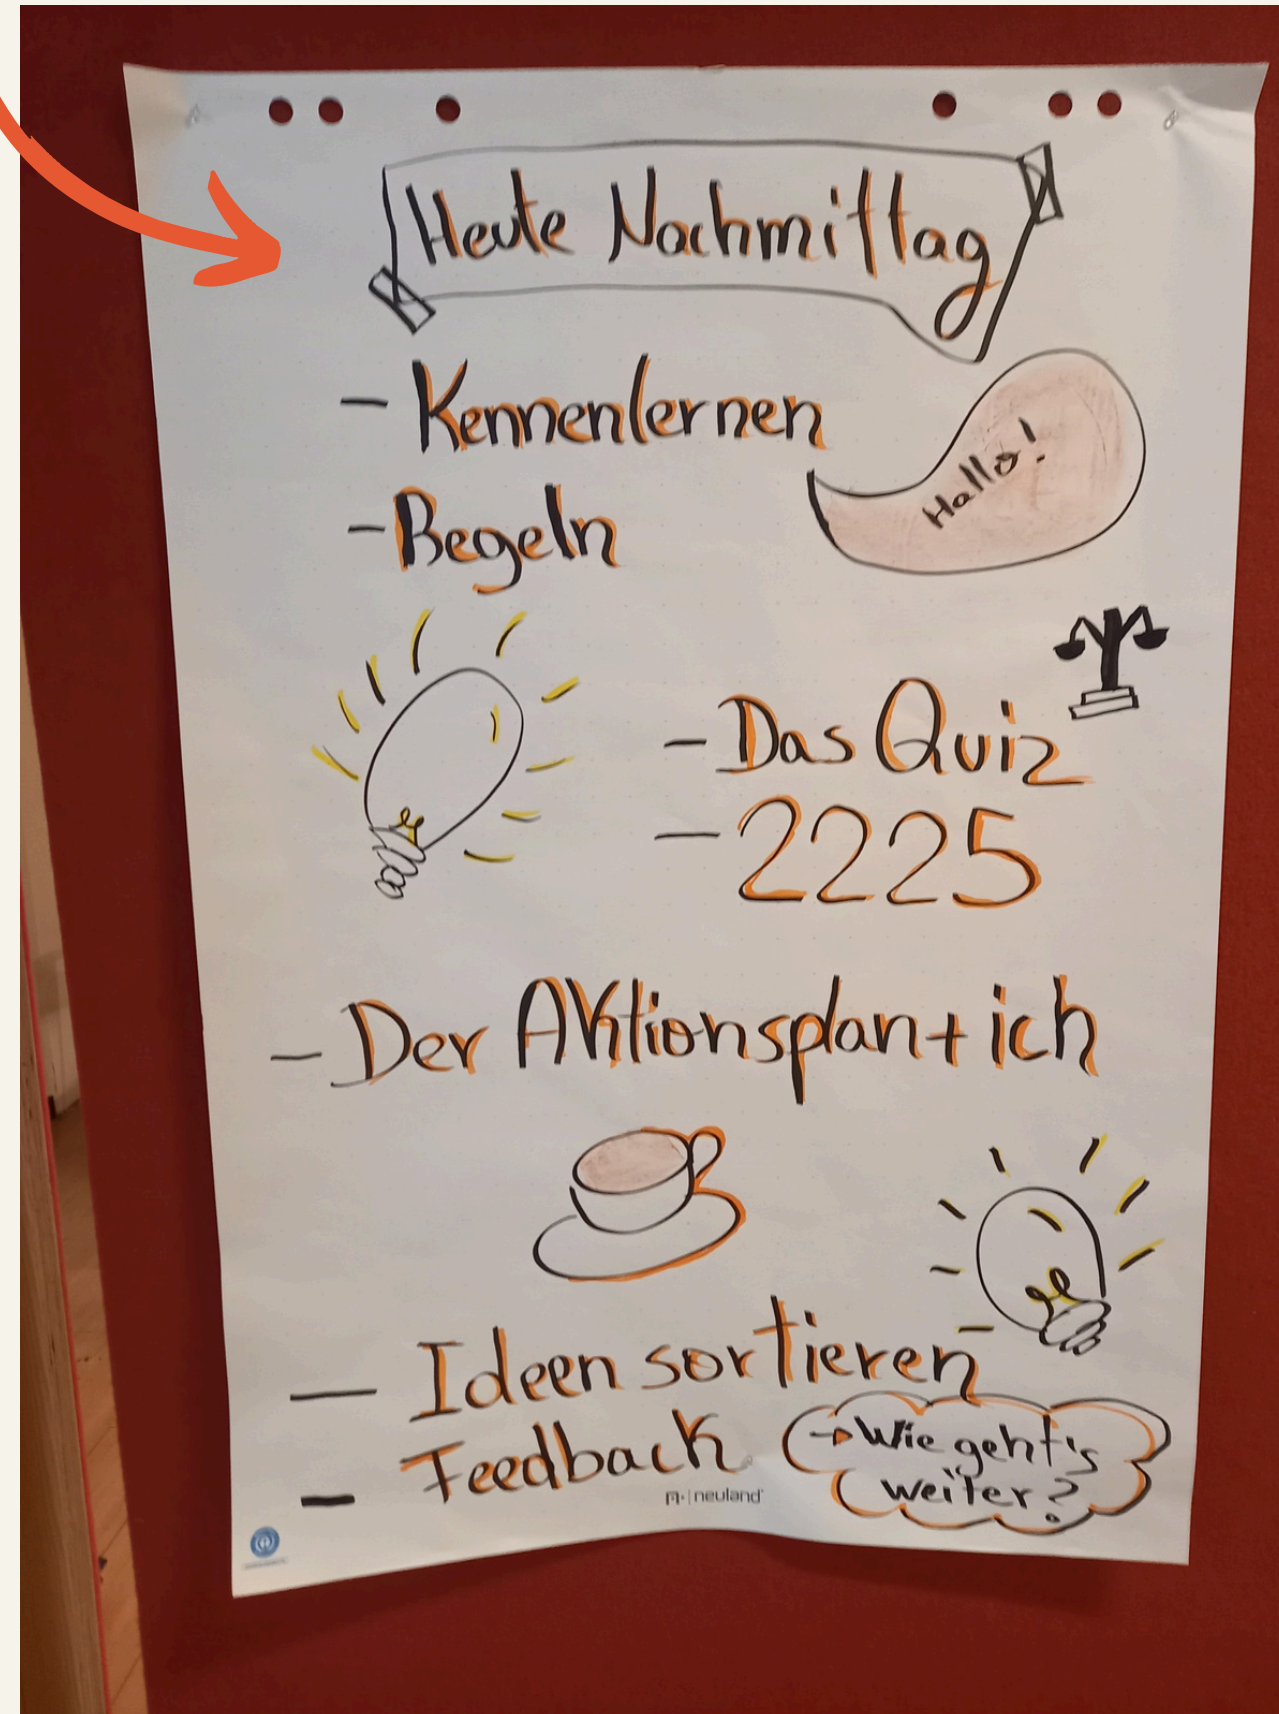 Heute Nachmittag
- Kennenlernen
Hallo!
- Regeln
- Das Quiz
- 2225
- Der Aktionsplan + ich
- Ideen sortieren
- Feedback
→ Wie geht's
weiter?
neuland